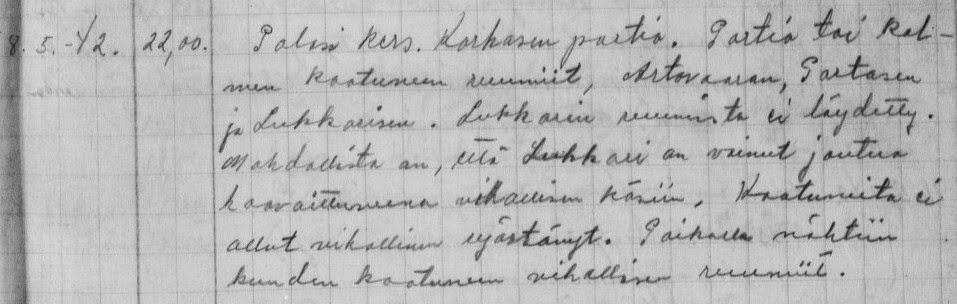 8. 5. -42. 22,00. Palasi kers. Korhosen partio. Partio toi kol-
men kaatuneen ruumiit, Artovaaran, Partasen
ja Lukkarisen. Lukkarin ruumista ei löydetty.
Mahdollista on, että Lukkari on voinut joutua
haavoittuneena vihollisen käsiin. Kaatuneita ei
ollut vihollinen ryöstänyt. Paikalla nähtiin
kuuden kaatuneen vihollisen ruumiit.